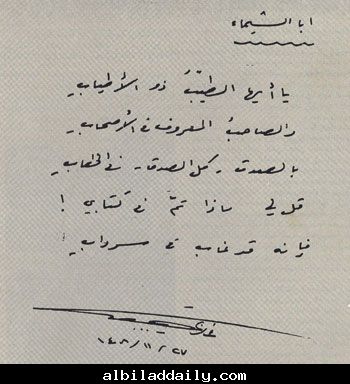 أبا الشيماء
يا أيها الطيّبُ ذو الأطيابِ
والصاحبُ المعروف في الأصحابِ
بالصدق، كل الصدق، في الخطابِ
قل لي ماذا تمّ في كتابي!
فإنه قد غاب في سردابِ!
غازي
albiladdaily.com